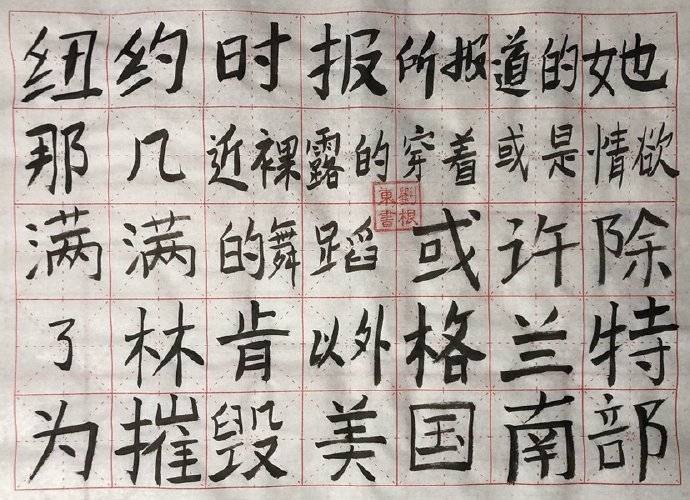 纽约时报所报道的她
那几近裸露的穿着或是情欲
满满的舞蹈或许除
了林肯以外格兰特
为摧毁美国南部
劉根東書